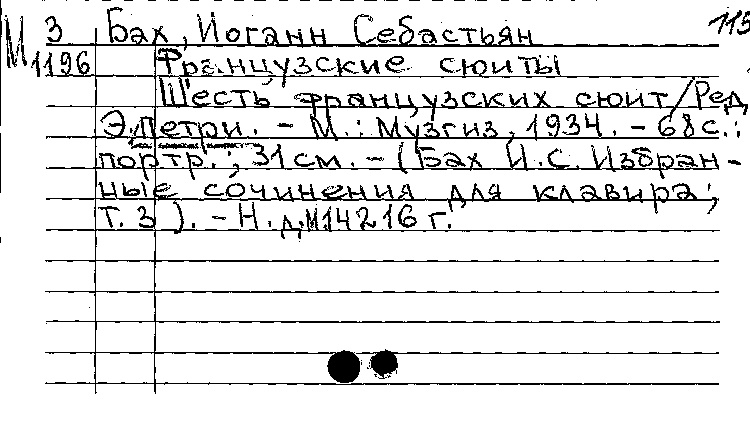 М 3 Бах, Иоганн Себастьян 115
1196 Французские сюиты
Шесть французских сюит/Ред.
Э.Петри. – М.: Музгиз, 1934. – 68с.:
портр.; 31см. – (Бах И.С. Избран-
ные сочинения для клавира;
Т. 3). – Н.д.М14216г.